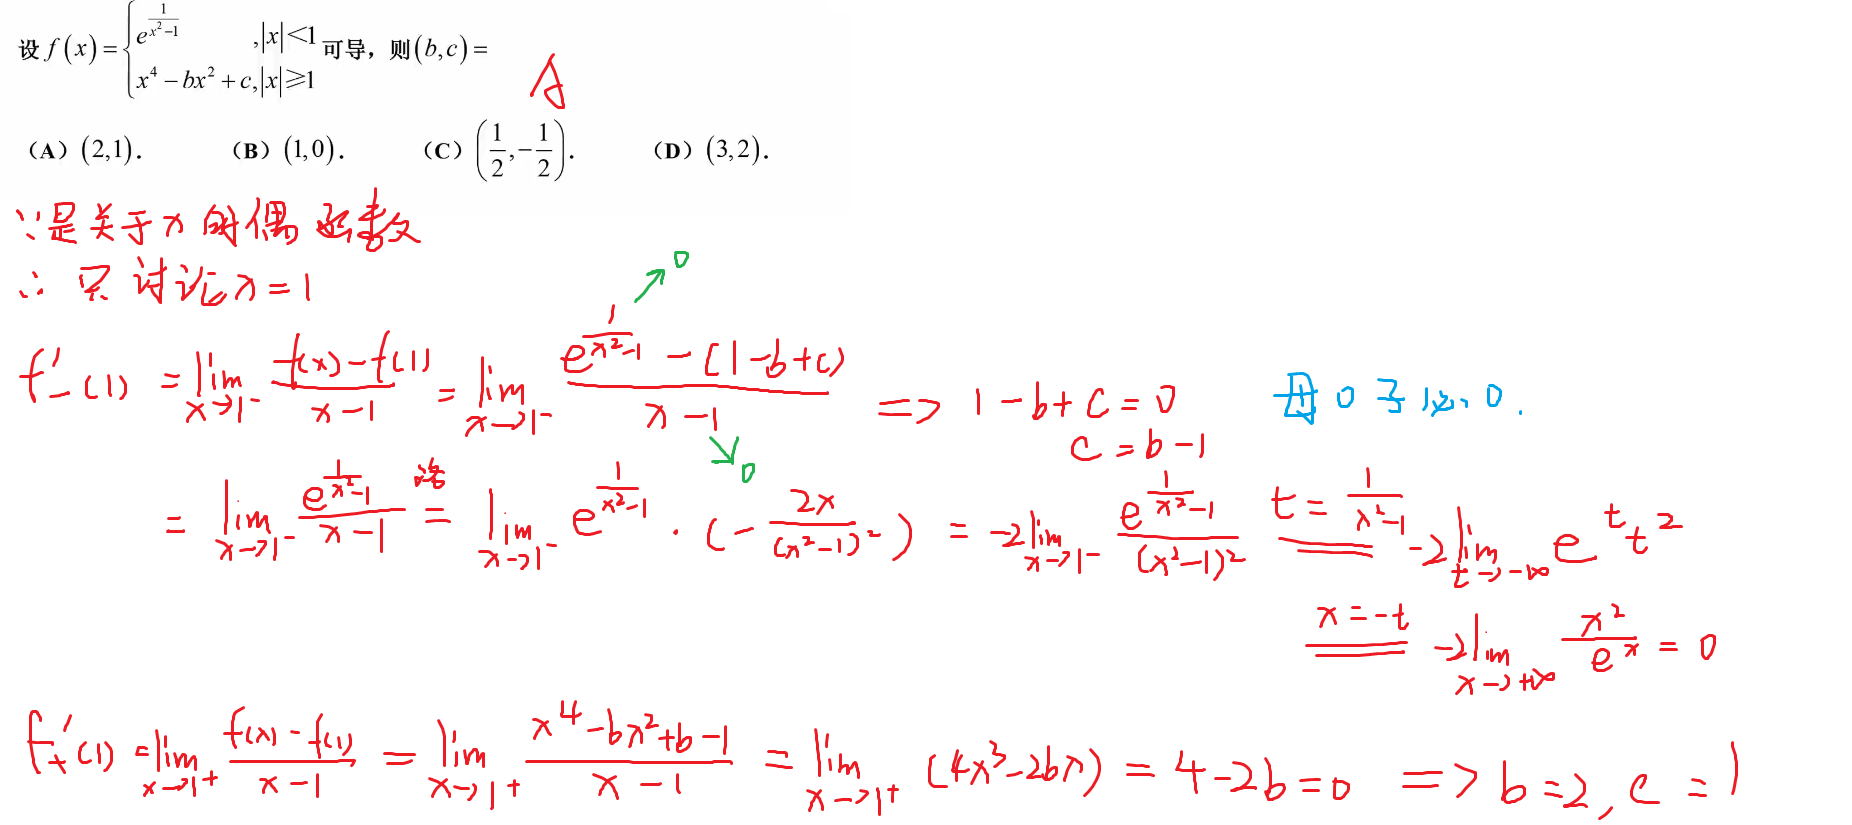 设 f(x) = { e^{1/(x²−1)} , |x|<1
x⁴ − bx² + c, |x|≥1 可导，则(b,c)=
A
（A）(2,1). （B）(1,0). （C）(1/2, −1/2). （D）(3,2).
∵是关于x的偶函数
∴ 只讨论x=1
f'₋(1) = lim_{x→1⁻} (f(x)−f(1))/(x−1) = lim_{x→1⁻} (e^{1/(x²−1)} − (1−b+c))/(x−1) => 1−b+c=0 母0子必0.
→0
→0
c=b−1
= lim_{x→1⁻} e^{1/(x²−1)}/(x−1) 洛= lim_{x→1⁻} e^{1/(x²−1)}·(−2x/(x²−1)²) = −2lim_{x→1⁻} e^{1/(x²−1)}/(x²−1)² t=1/(x²−1) −2lim_{t→−∞} e^t t²
x=−t −2lim_{x→+∞} x²/e^x = 0
f'₊(1) = lim_{x→1⁺} (f(x)−f(1))/(x−1) = lim_{x→1⁺} (x⁴−bx²+b−1)/(x−1) = lim_{x→1⁺} (4x³−2bx) = 4−2b=0 => b=2, c=1